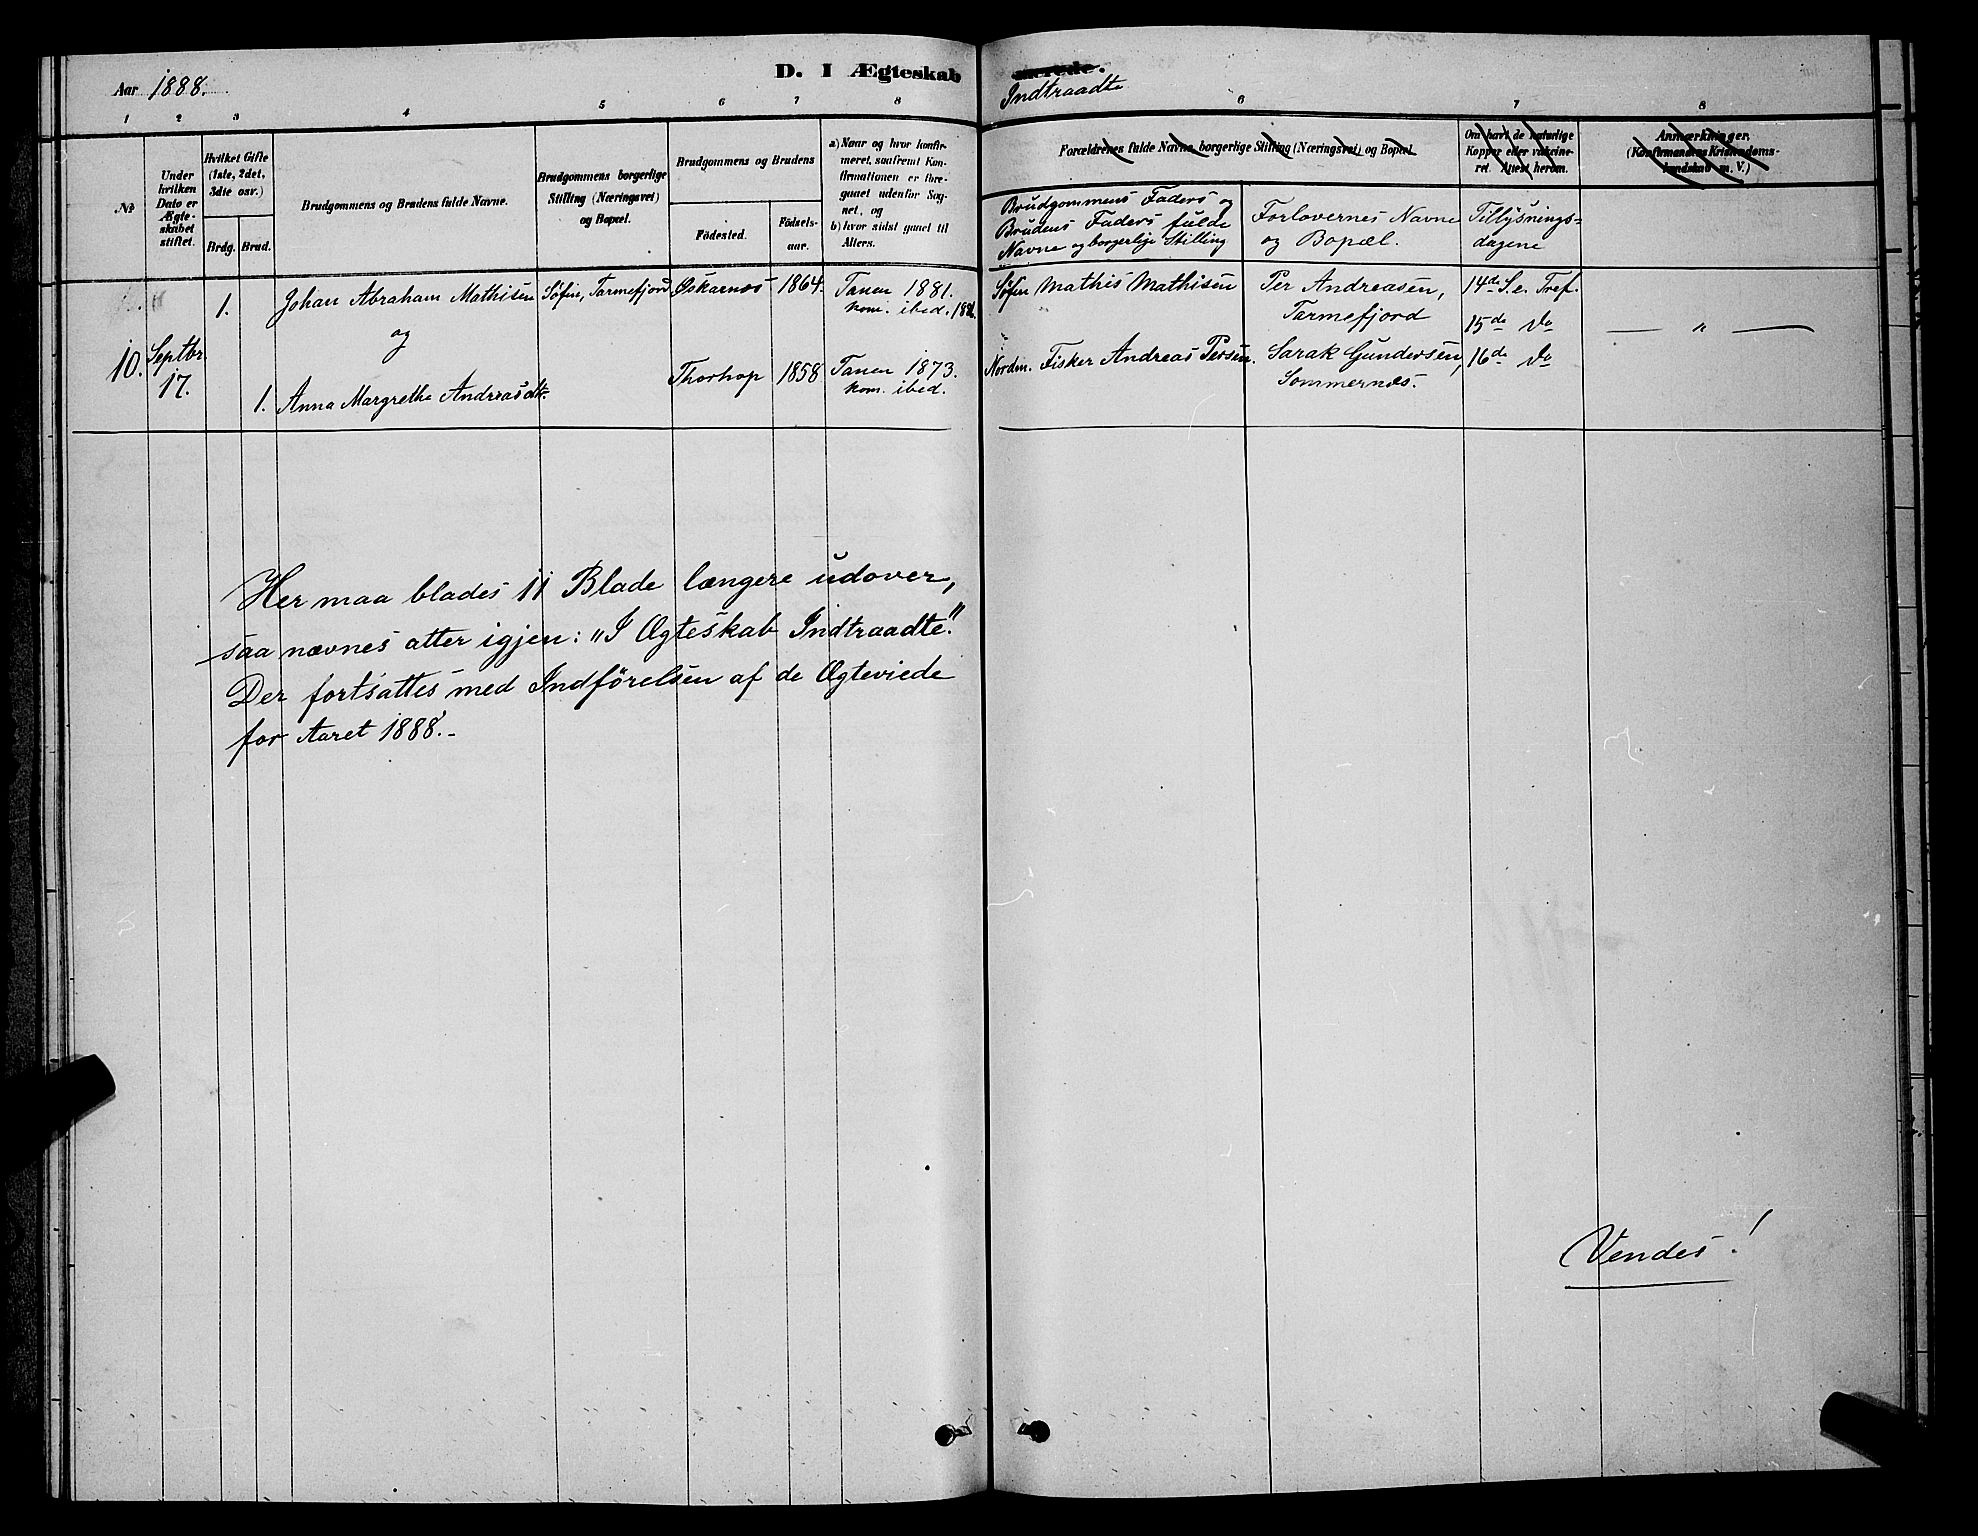 Aar 1888.
D. I Ægteskab
1 2 3 4 5 6 7 8
№
Under hvilken Dato er Ægteskabet stiftet.
Hvilket Gifte (1ste, 2det, 3die osv.)
Brdg. Brud.
Brudgommens og Brudens fulde Navne.
Brudgommens borgerlige Stilling (Næringsvei) og Bopæl.
Brudgommens og Brudens
Födested. Födsels-aar.
a) Naar og hvor konfirmeret, saafremt Konfirmationen er foregaaet udenfor Sognet, og
b) hvor sidst gaaet til Alters.
10. Septbr. 17.
1. Johan Abraham Mathisen Søfin, Tarmefjord 1864. Tanen 1881.
kom. ibed.
og
1. Anna Margrethe Andreasdtr. Thorhop 1858 Tanen 1873.
kom. ibed.
Her maa blades 11 Blade længere udover,
saa nævnes atter igjen: "I Ægteskab Indtraadte."
Der fortsattes med Indførelsen af de Ægteviede
for Aaret 1888.-
mrede.
Indtraadte
6 7 8
Forældrenes fulde Navne, borgerlige Stilling (Næringsvei) og Bopæl.
Om havt de naturlige Kopper eller vakcineret. Attest herom.
Anmærkninger. (Konfirmandens Kristendomskundskab m. V.)
Brudgommens Faders og
Brudens Faders fulde
Navne og borgerlige Stilling
Forlovernes Navne
og Bopæl.
Tillysnings-
dagene
Søfin Mathis Mathisen Per Andreasen, 14de S. e. Tref.
Tarmefjord 15de do
— " —
Norden. Fisker Andreas Persen. Sarak Gundersen, 16de do
Sommernes.
Vendes!